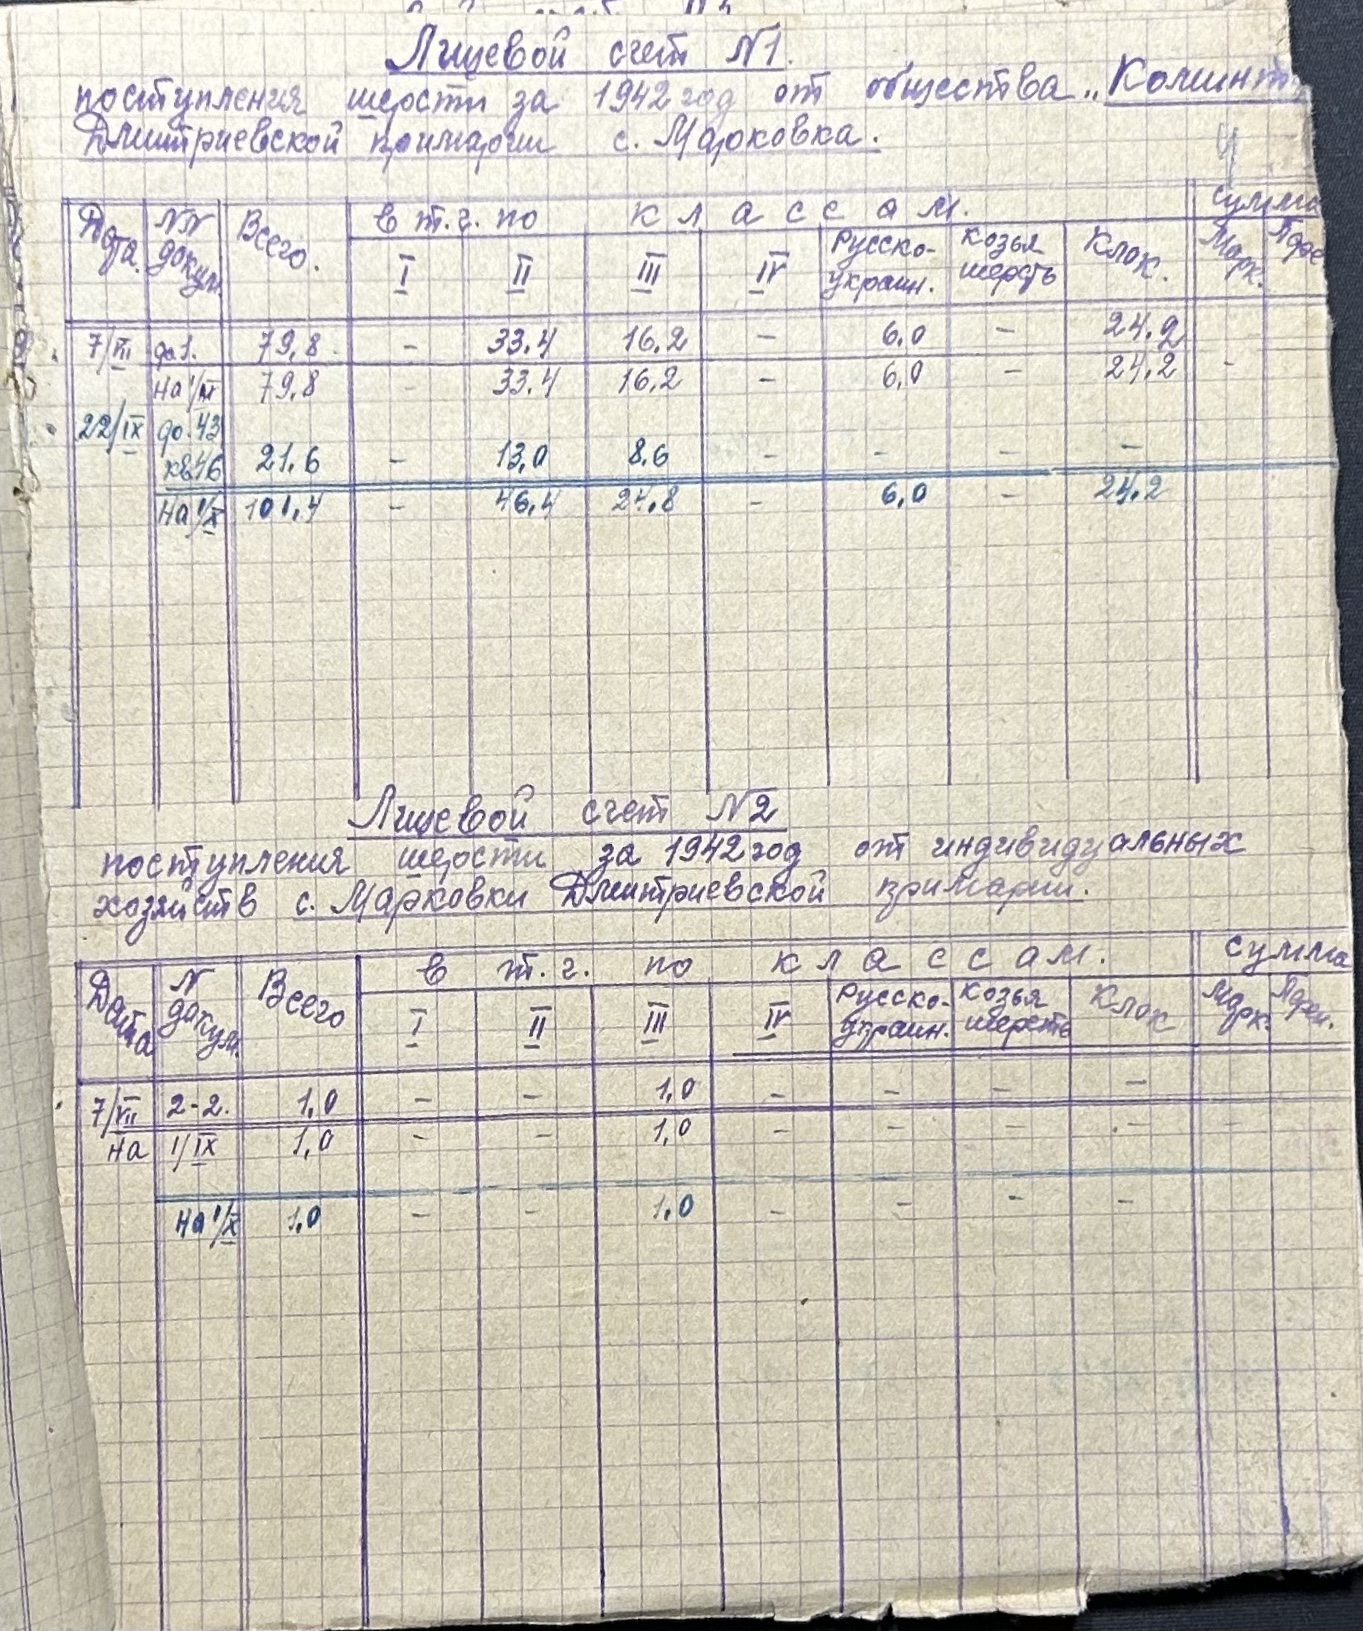 Лицевой счет N1.
поступления шерсти за 1942 год от общества „Коминт
Дмитриевской примарии с. Марковка.
Дата. NN докум. Всего. в т.ч. по классам. сумма
I II III IV Русско-украин. козья шерсть Клок. Марк.
7/VIII до 1. 79,8 - 33.4 16,2 - 6,0 - 24.2
на 1/IX 79,8 - 33.4 16,2 - 6,0 - 24,2 -
22/IX до.43
кв.46 21.6 - 13,0 8.6 - - - -
на 1/X 101,4 - 46,4 24,8 - 6,0 - 24,2
Лицевой счет N2
поступления шерсти за 1942 год от индивидуальных
хозяйств с. Марковки Дмитриевской примарии.
Дата N докум. Всего в т.г. по классам. сумма
I II III IV Русско-украин. козья шерсть Клок Марк. Пфен.
7/VIII 2-2. 1,0 - - 1,0 - - - -
на 1/IX 1,0 - - 1,0 - - - - -
на 1/X 1,0 - - 1,0 - - - -